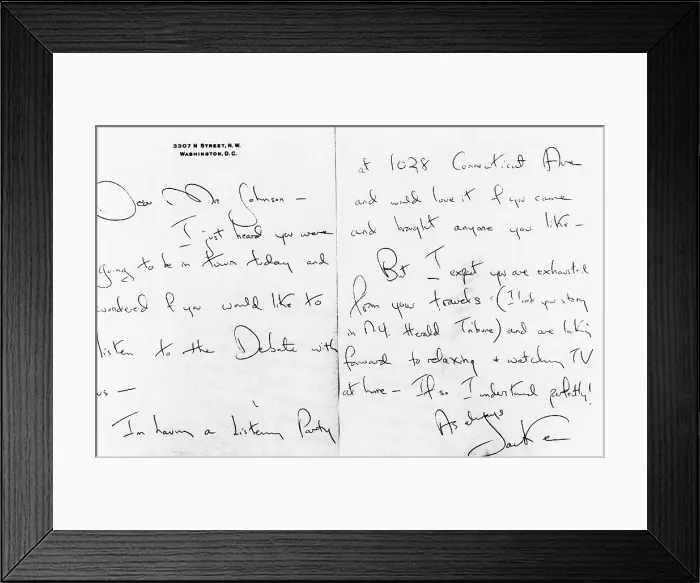 3307 N STREET, N.W.
WASHINGTON, D.C.
Dear Mrs Johnson —
I just heard you were
going to be in town today and
wondered if you would like to
listen to the Debate with
us —
I'm having a Listening Party
at 1028 Connecticut Ave
and would love it if you came
and brought anyone you like —
But I expect you are exhausted
from your travels (I your story
in N.Y. Herald Tribune) and are
forward to relaxing + watching TV
at home — If so I understand perfectly!
As always
Jackie